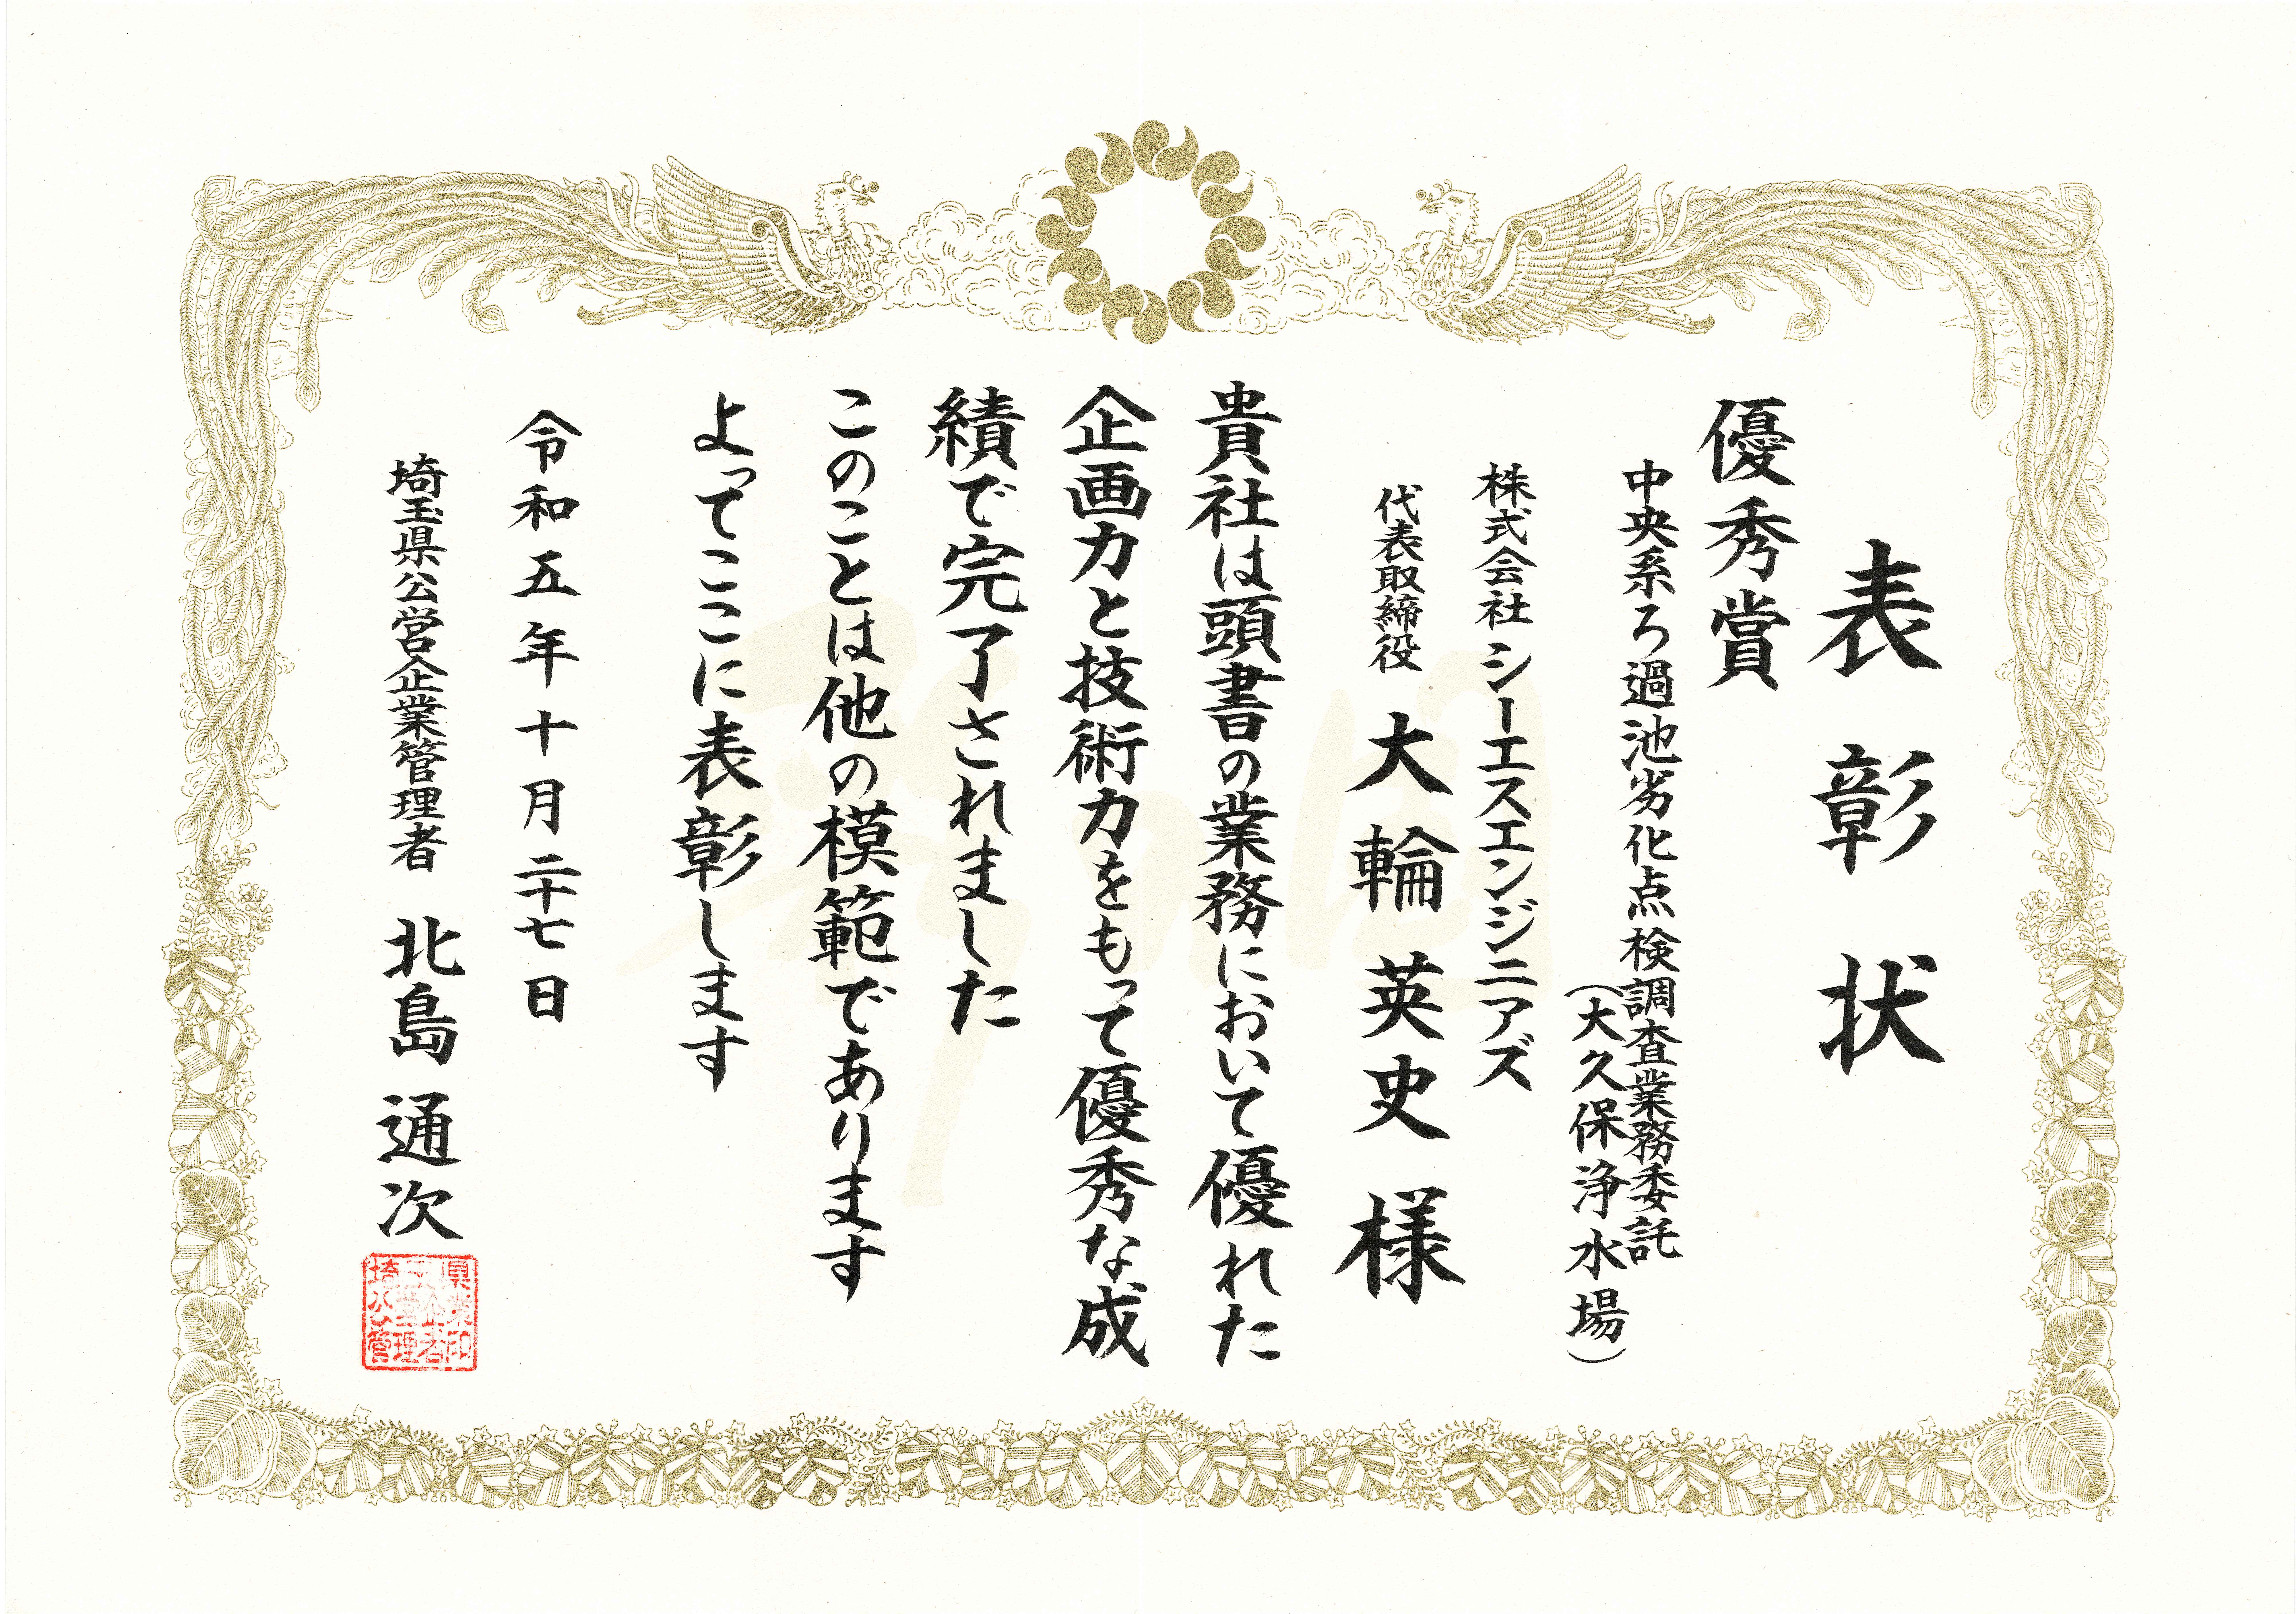 表彰状
優秀賞
中央系ろ過池劣化点検調査業務委託
（大久保浄水場）
株式会社 シーエスエンジニアズ
代表取締役 大輪英史 様
貴社は頭書の業務において優れた
企画力と技術力をもって優秀な成
績で完了されました
このことは他の模範であります
よってここに表彰します
令和五年十月二十七日
埼玉県公営企業管理者 北島通次